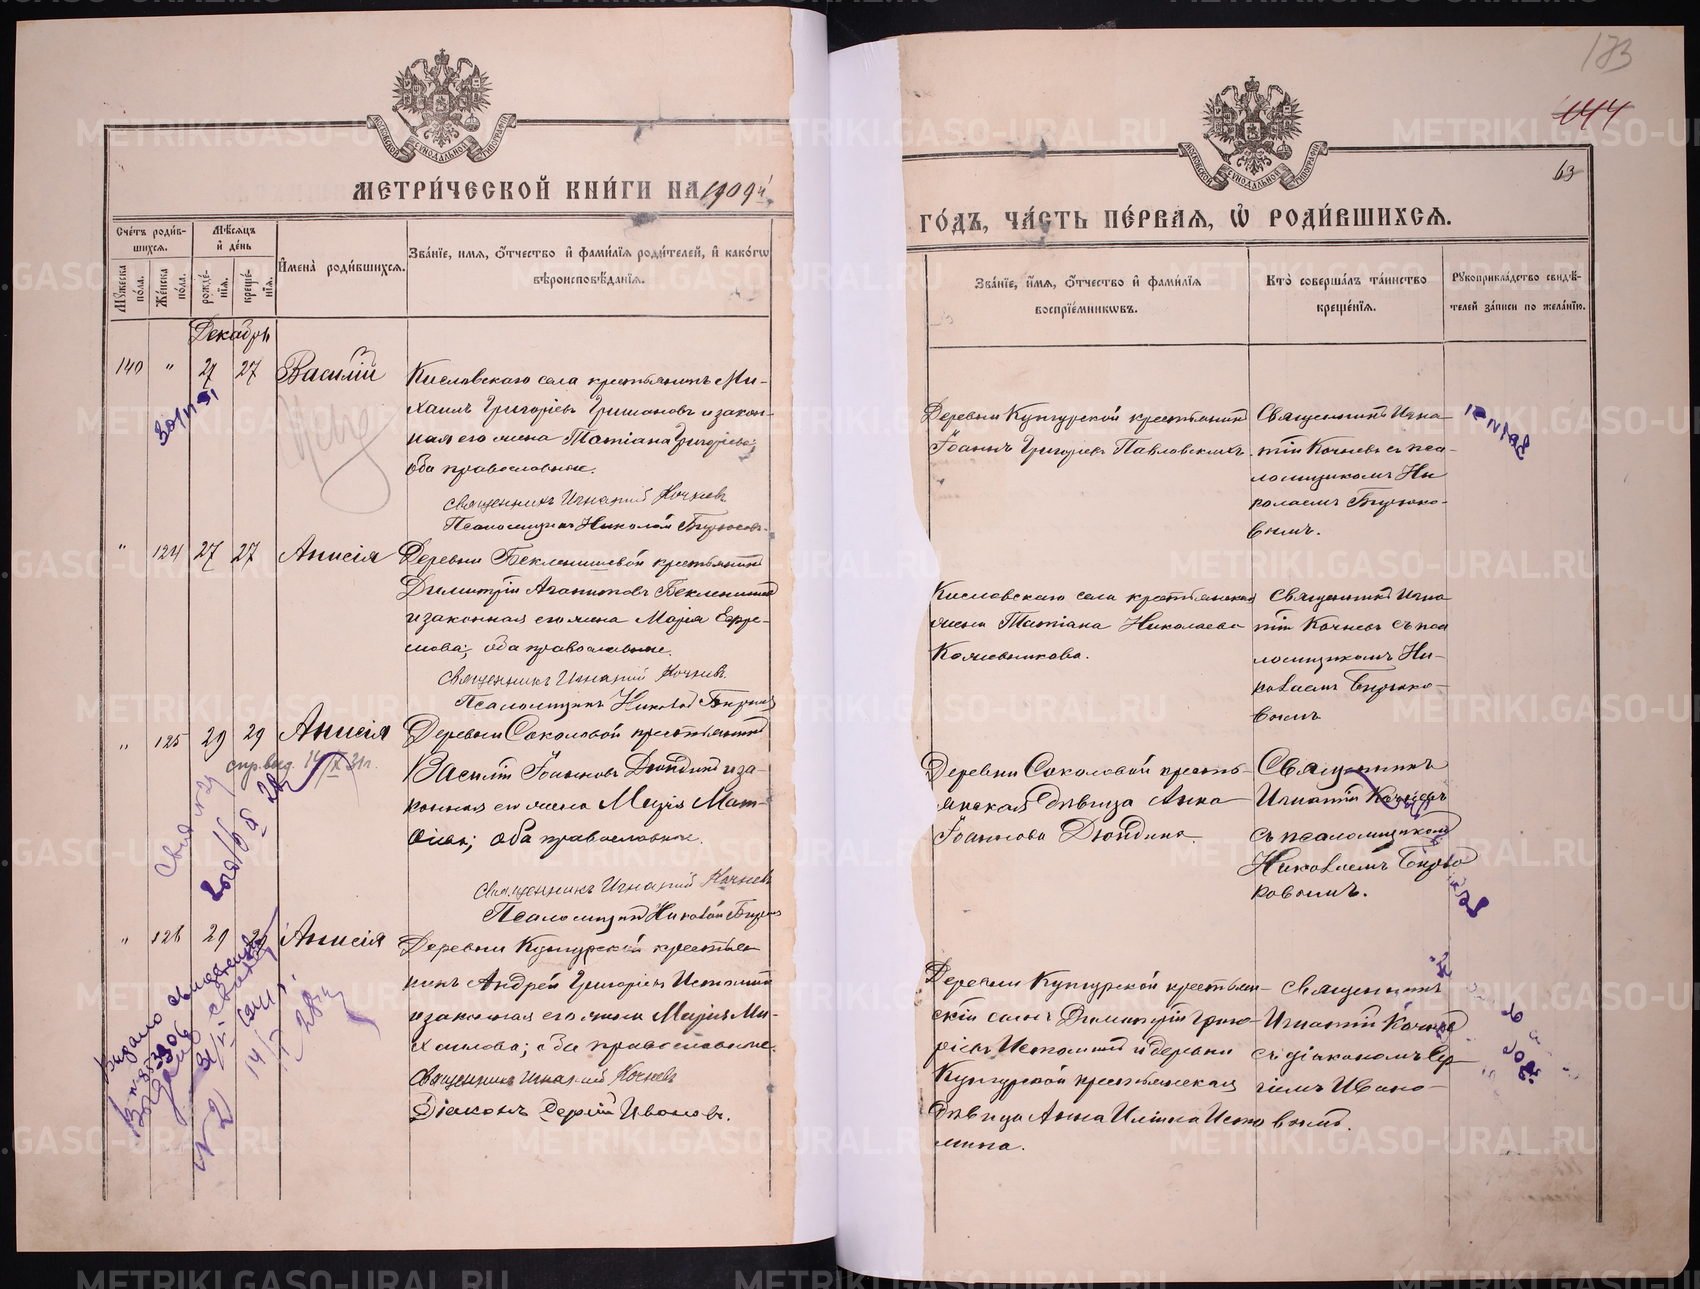 МЕТРИ́ЧЕСКОЙ КНИ́ГИ НА 1909й
Сче́тъ роди́в-
шихсѧ.
Му́жеска
по́ла.
Же́нска
по́ла.
Мѣ́сѧцъ
и҆ де́нь
рожде́-
нїѧ.
креще́-
нїѧ.
И҆мена̀ роди́вшихсѧ.
Зва́нїе, имѧ, ѻ҆́тчество и҆ фами́лїѧ роди́телей, и҆ како́гѡ
вѣроисповѣ́данїѧ.
Декабрь
140 " 27 27 Василій
Кисловскаго села крестьянинъ Ми-
хаилъ Григорьевъ Гришановъ и закон-
ная его жена Татіана Григорьева;
оба православные.
Священникъ Игнатій Кочневъ
Псаломщикъ Николай Бирюковъ
" 124 27 27 Анисія
Деревни Бекленищевой крестьянинъ
Димитрій Агапитовъ Бекленищевъ
и законная его жена Марія Ефре-
мова; оба православные.
Священникъ Игнатій Кочневъ
Псаломщикъ Николай Бирюковъ
" 125 29 29 Анисія
Деревни Соколовой крестьянинъ
Василій Іоанновъ Дюндинъ и за-
конная его жена Марія Мат-
ѳіева; оба православные.
Священникъ Игнатій Кочневъ
Псаломщикъ Николай Бирюковъ
" 126 29 29 Анисія
Деревни Кунгурской крестья-
нинъ Андрей Григорьевъ Истоминъ
и законная его жена Марія Ми-
хаилова; оба православные.
Священникъ Игнатій Кочневъ
Діаконъ Сергій Ивановъ.
Выдано
173
63
ГО́ДЪ, ЧА́СТЬ ПЕ́РВАѦ, Ѽ РОДИ́ВШИХСѦ.
Зва́нїе, и҆́мѧ, ѻ҆́тчество и҆ фами́лїѧ
воспрїе́мникѡвъ.
Кто̀ соверша́лъ та́инство
креще́нїѧ.
Рꙋкоприкла́дство свидѣ́-
телей за́писи по жела́нїю.
Деревни Кунгурской крестьянинъ
Іоаннъ Григорьевъ Павловскихъ.
Священникъ Игна-
тій Кочневъ съ пса-
ломщикомъ Ни-
колаемъ Бирюко-
вымъ.
Кисловскаго села крестьянская
жена Татіана Николаева
Кожевникова.
Священникъ Игна-
тій Кочневъ съ пса-
ломщикомъ Ни-
колаемъ Бирюко-
вымъ
Деревни Соколовой кресть-
янская дѣвица Анна
Іоаннова Дюндина.
Священникъ
Игнатій Кочневъ
съ псаломщикомъ
Николаемъ Бирю-
ковымъ.
Деревни Кунгурской крестьян-
скій сынъ Димитрій Григо-
рьевъ Истоминъ и деревни
Кунгурской крестьянская
дѣвица Анна Иліина Исто-
мина.
Священникъ
Игнатій Кочневъ
съ діакономъ Сер-
гіемъ Ивано-
вымъ.